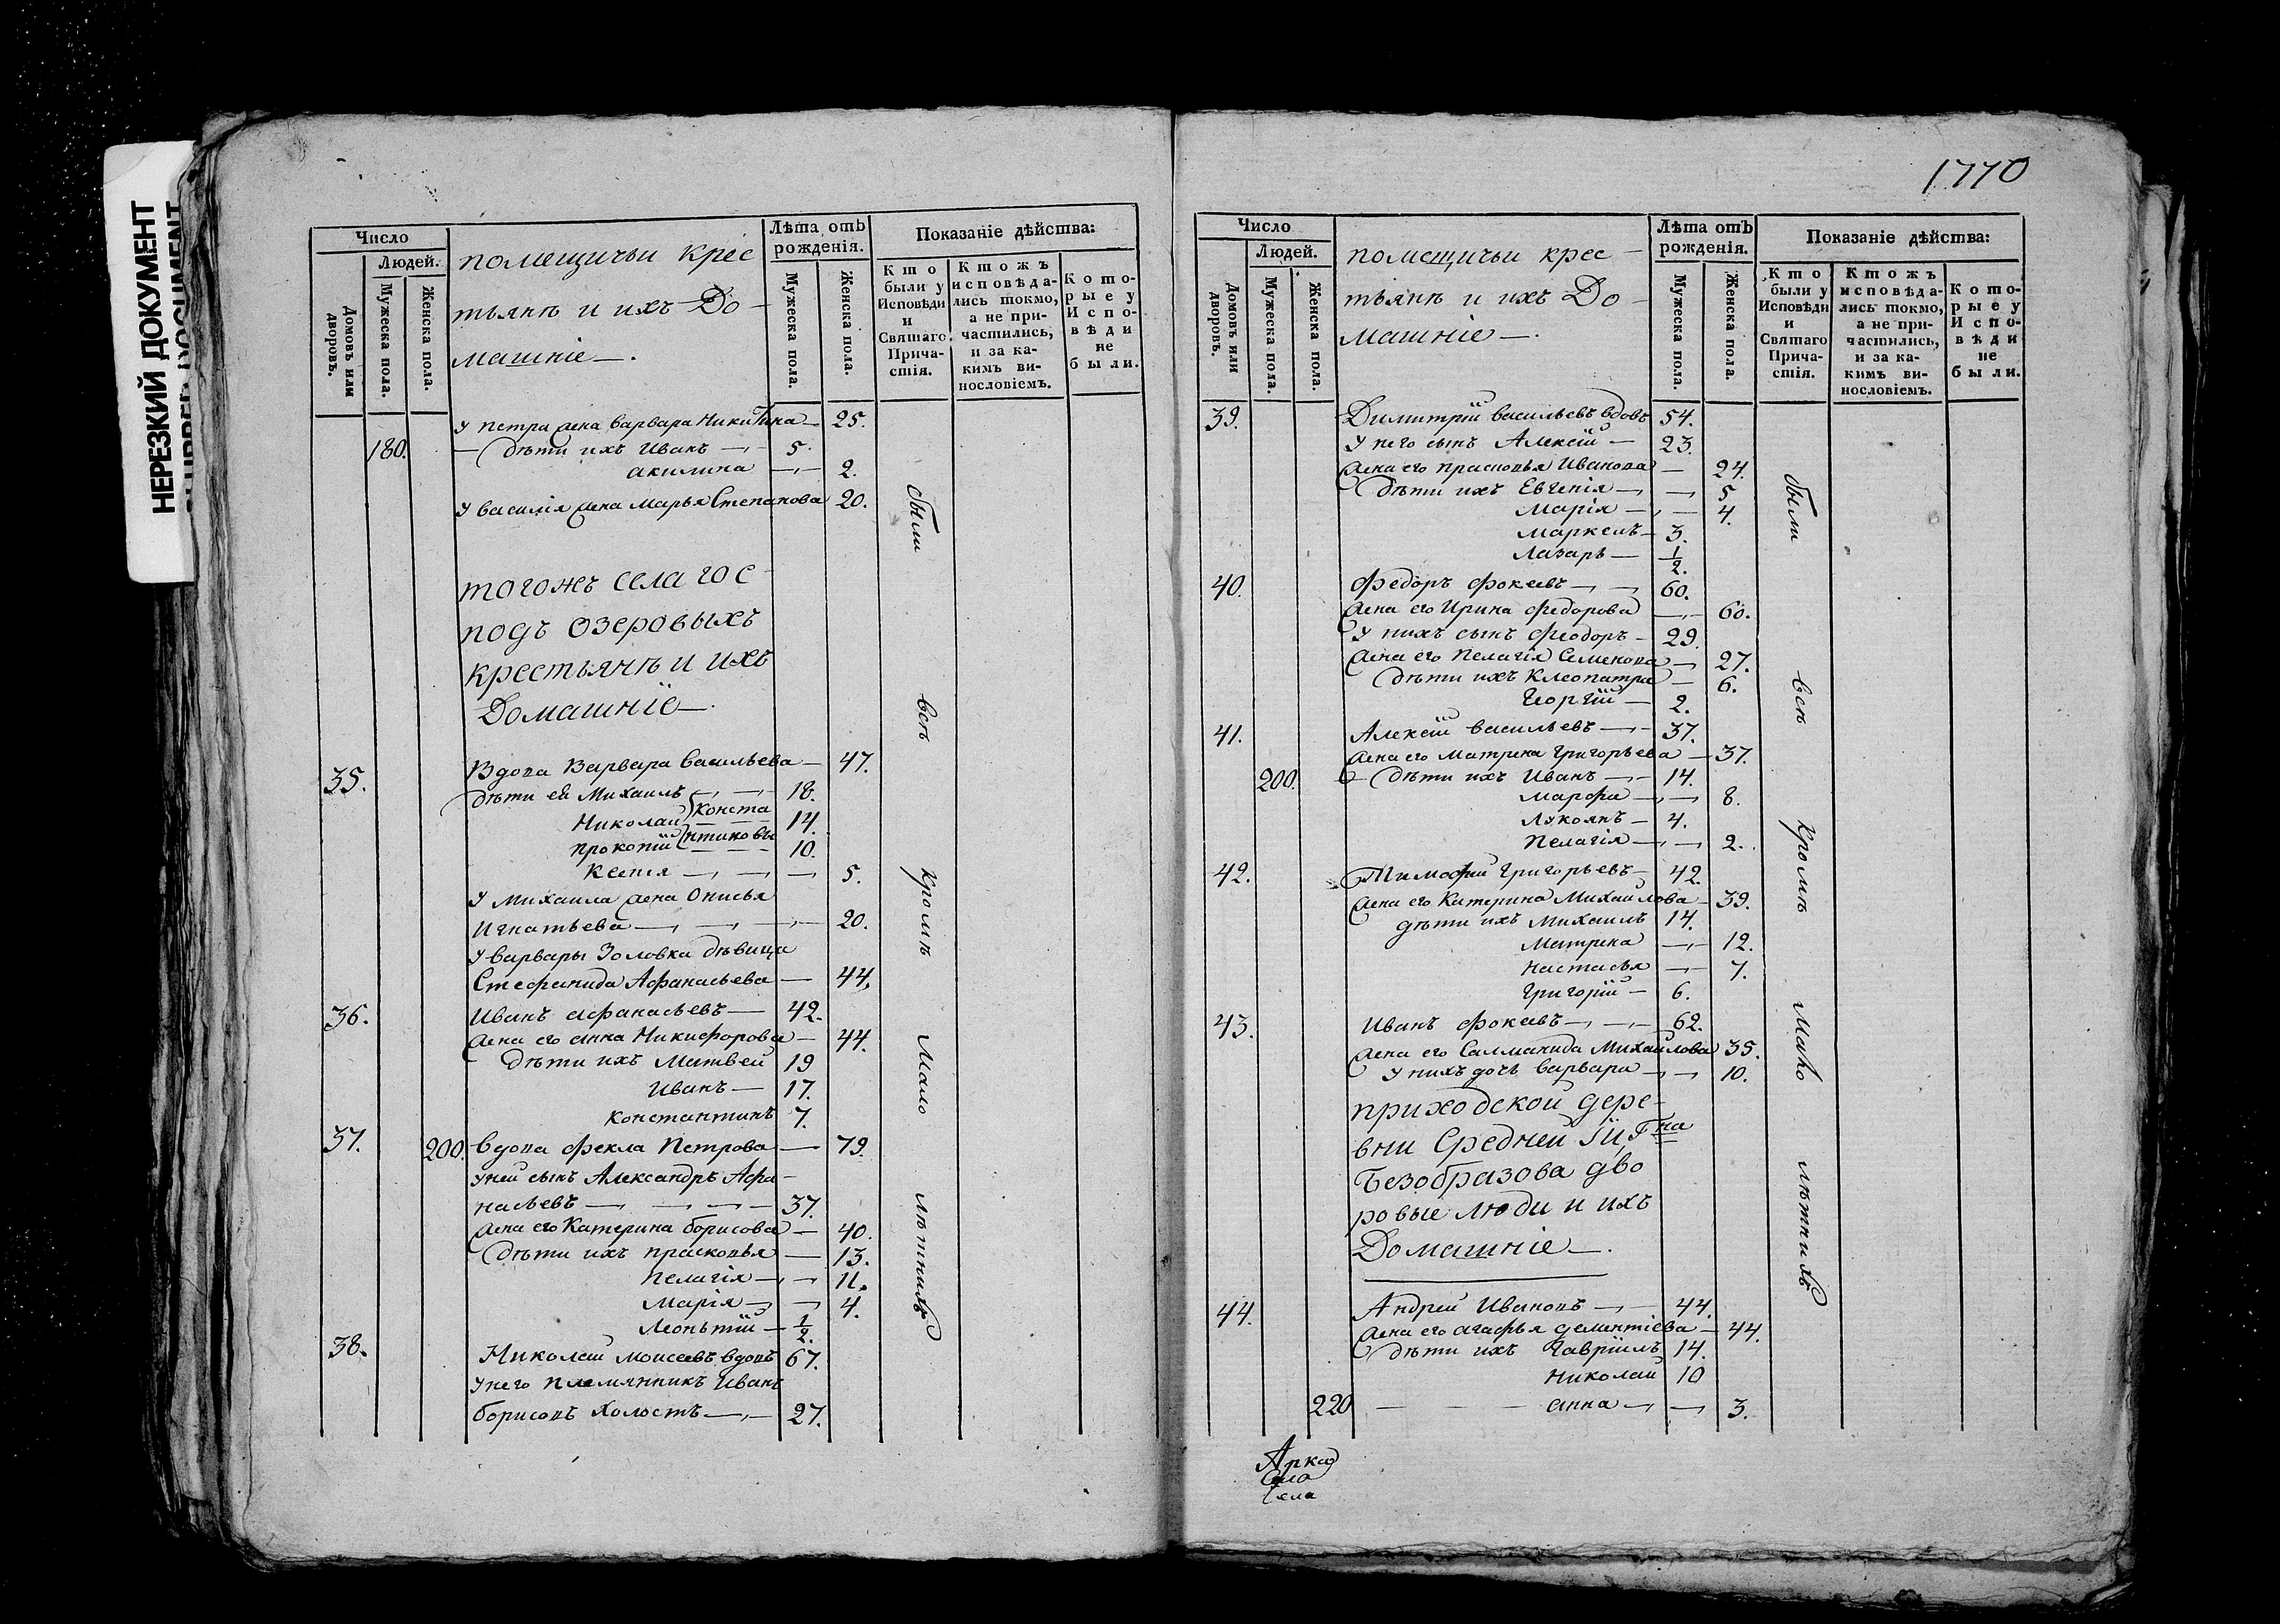 НЕРЕЗКИЙ ДОКУМЕНТ
Число
Людей.
Домовъ или дворовъ.
Мужеска пола.
Женска пола.
помещичьи крес
тьянѣ и ихъ До-
машніе —.
Лѣта отъ рожденія.
Мужеска пола.
Женска пола.
Показаніе дѣйства:
Кто были у Исповѣди и Святаго Прича-стія.
Ктожъ исповѣда-лись токмо, а не при-частились, и за ка-кимъ ви-нословіемъ.
Кото-рые у Испо-вѣди не были.
У петра жена варвара Никитина — 25.
180. — дѣти ихъ Иванъ — 5.
акилина — 2.
У василія жена марья Степанова 20.
тогожъ села гос
подъ озеровыхъ
крестьянѣ и ихъ
Домашніе —.
35. Вдова Варвара васильева — 47.
дѣти ей Михаилъ — 18.
Николай Конста 14.
прокопій нтиновы 10.
Ксенія — 5.
У михаила жена Онисья
Игнатьева — 20.
У варвары Золовка дѣвица
Стефанида Афанасьева — 44.
36. Иванъ афанасьевъ — 42.
жена его анна Никифорова — 44.
дѣти ихъ Матвей 19
Иванъ — 17.
константинъ 7.
37. 200. вдова фекла Петрова — 79.
У ней сынъ Александръ Афа-
насьевъ — 37.
жена его Катерина борисова — 40.
дѣти ихъ прасковья — 13.
пелагія — 11.
Марія — 4.
Леонтій — 1/2.
38. Николай моисеевъ вдовъ 67.
У него племянникъ Иванъ
борисовъ холостъ — 27.
были
всѣ
Кромѣ
мало
лѣтнихъ
1770
Число
Людей.
Домовъ или дворовъ.
Мужеска пола.
Женска пола.
помещичьи крес-
тьянѣ и ихъ До-
машніе —.
Лѣта отъ рожденія.
Мужеска пола.
Женска пола.
Показаніе дѣйства:
Кто были у Исповѣди и Святаго Прича-стія.
Ктожъ исповѣда-лись токмо, а не при-частились, и за ка-кимъ ви-нословіемъ.
Кото-рые у Испо-вѣди не были.
39. Димитрій васильевъ вдовъ 54.
У него сынъ Алексій — 23.
жена его прасковья Иванова — 24.
дѣти ихъ Евгенія — 5
Марія — 4.
маркелъ — 3.
Лазарь — 1/2.
40. Федоръ фокеевъ — 60.
жена его Ирина федорова — 60.
У нихъ сынъ феодоръ — 29.
жена его пелагія Семенова — 27.
дѣти ихъ Клеопатра — 6.
Георгій — 2.
41. Алексій васильевъ — 37.
жена его матрина Григорьева — 37.
200. — дѣти ихъ Иванъ — 14.
марфа — 8.
Лукоянъ — 4.
Пелагія — 2.
42. Тимофій Григорьевъ — 42.
жена его Катерина Михайлова — 39.
дѣти ихъ михаилъ 14.
матрина — 12.
настасья — 7.
Григорій — 6.
43. Иванъ фокеевъ — 62.
жена его Салманида михайлова 35.
У нихъ дочь варвара — 10.
приходской дере-
вни Средней Гна
Безобразова дво
ровые люди и ихъ
Домашніе —.
44. Андрей Ивановъ — 44.
жена его агафья дементіева — 44.
дѣти ихъ Гавріилъ 14.
николай 10
220 — анна — 3.
были
всѣ
Кромѣ
мало
лѣтнихъ